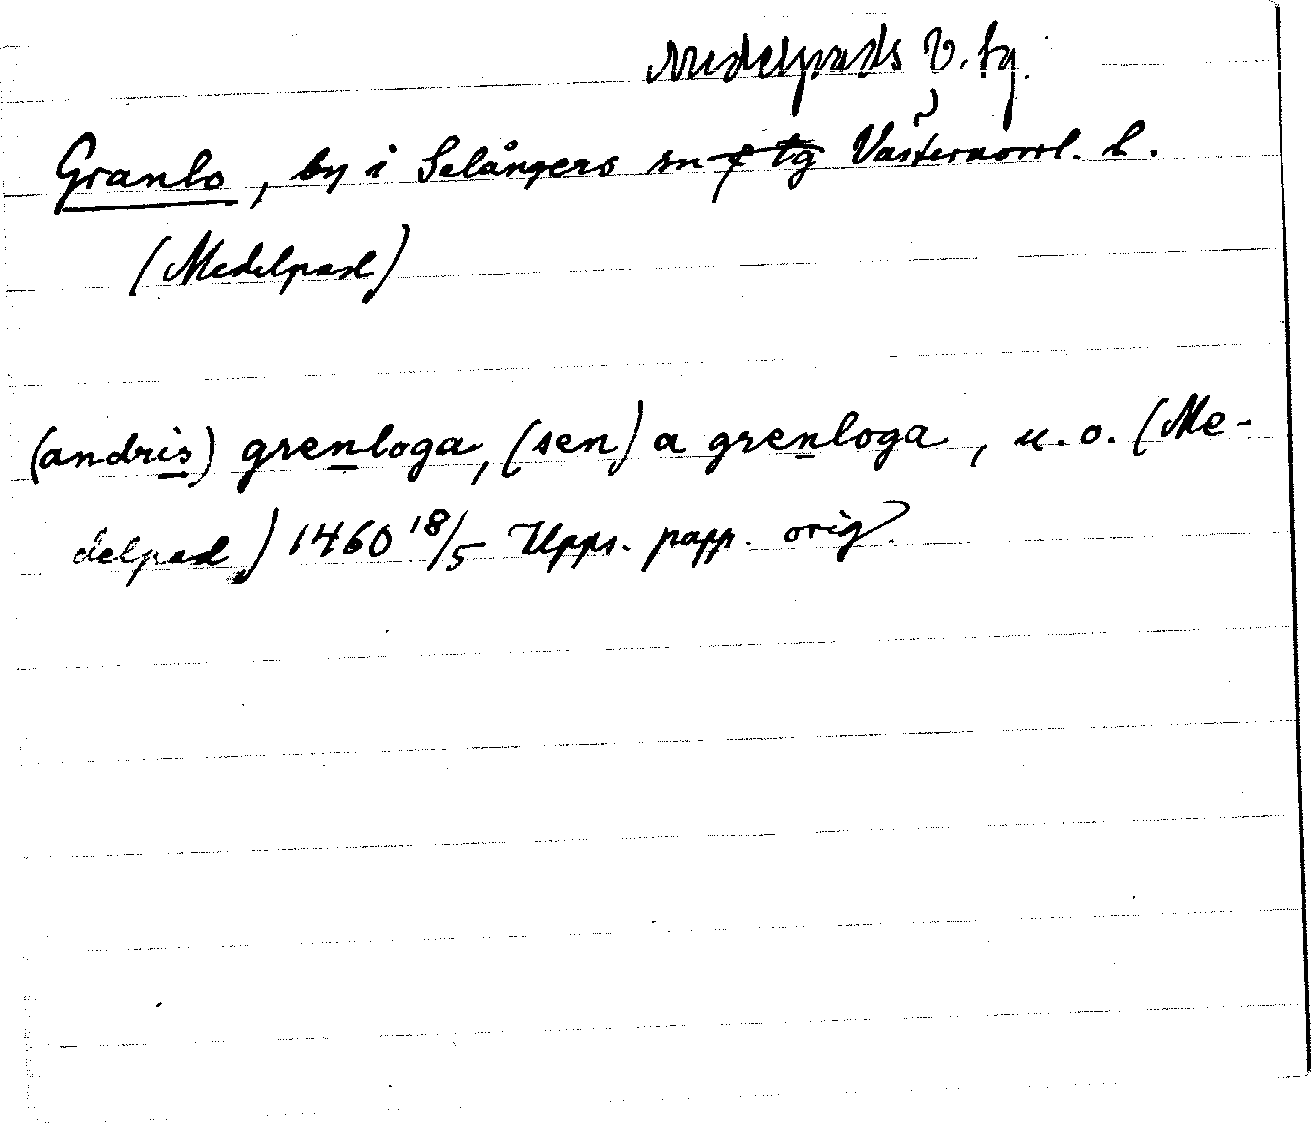 Medelpads V. tg.
Granlo, by i Selångers sn o tg Västernorrl. l.
(Medelpad)
(andris) grenloga, (sen) a grenloga, u. o. (Me-
delpad) 1460 18/5 Upps. papp. orig.